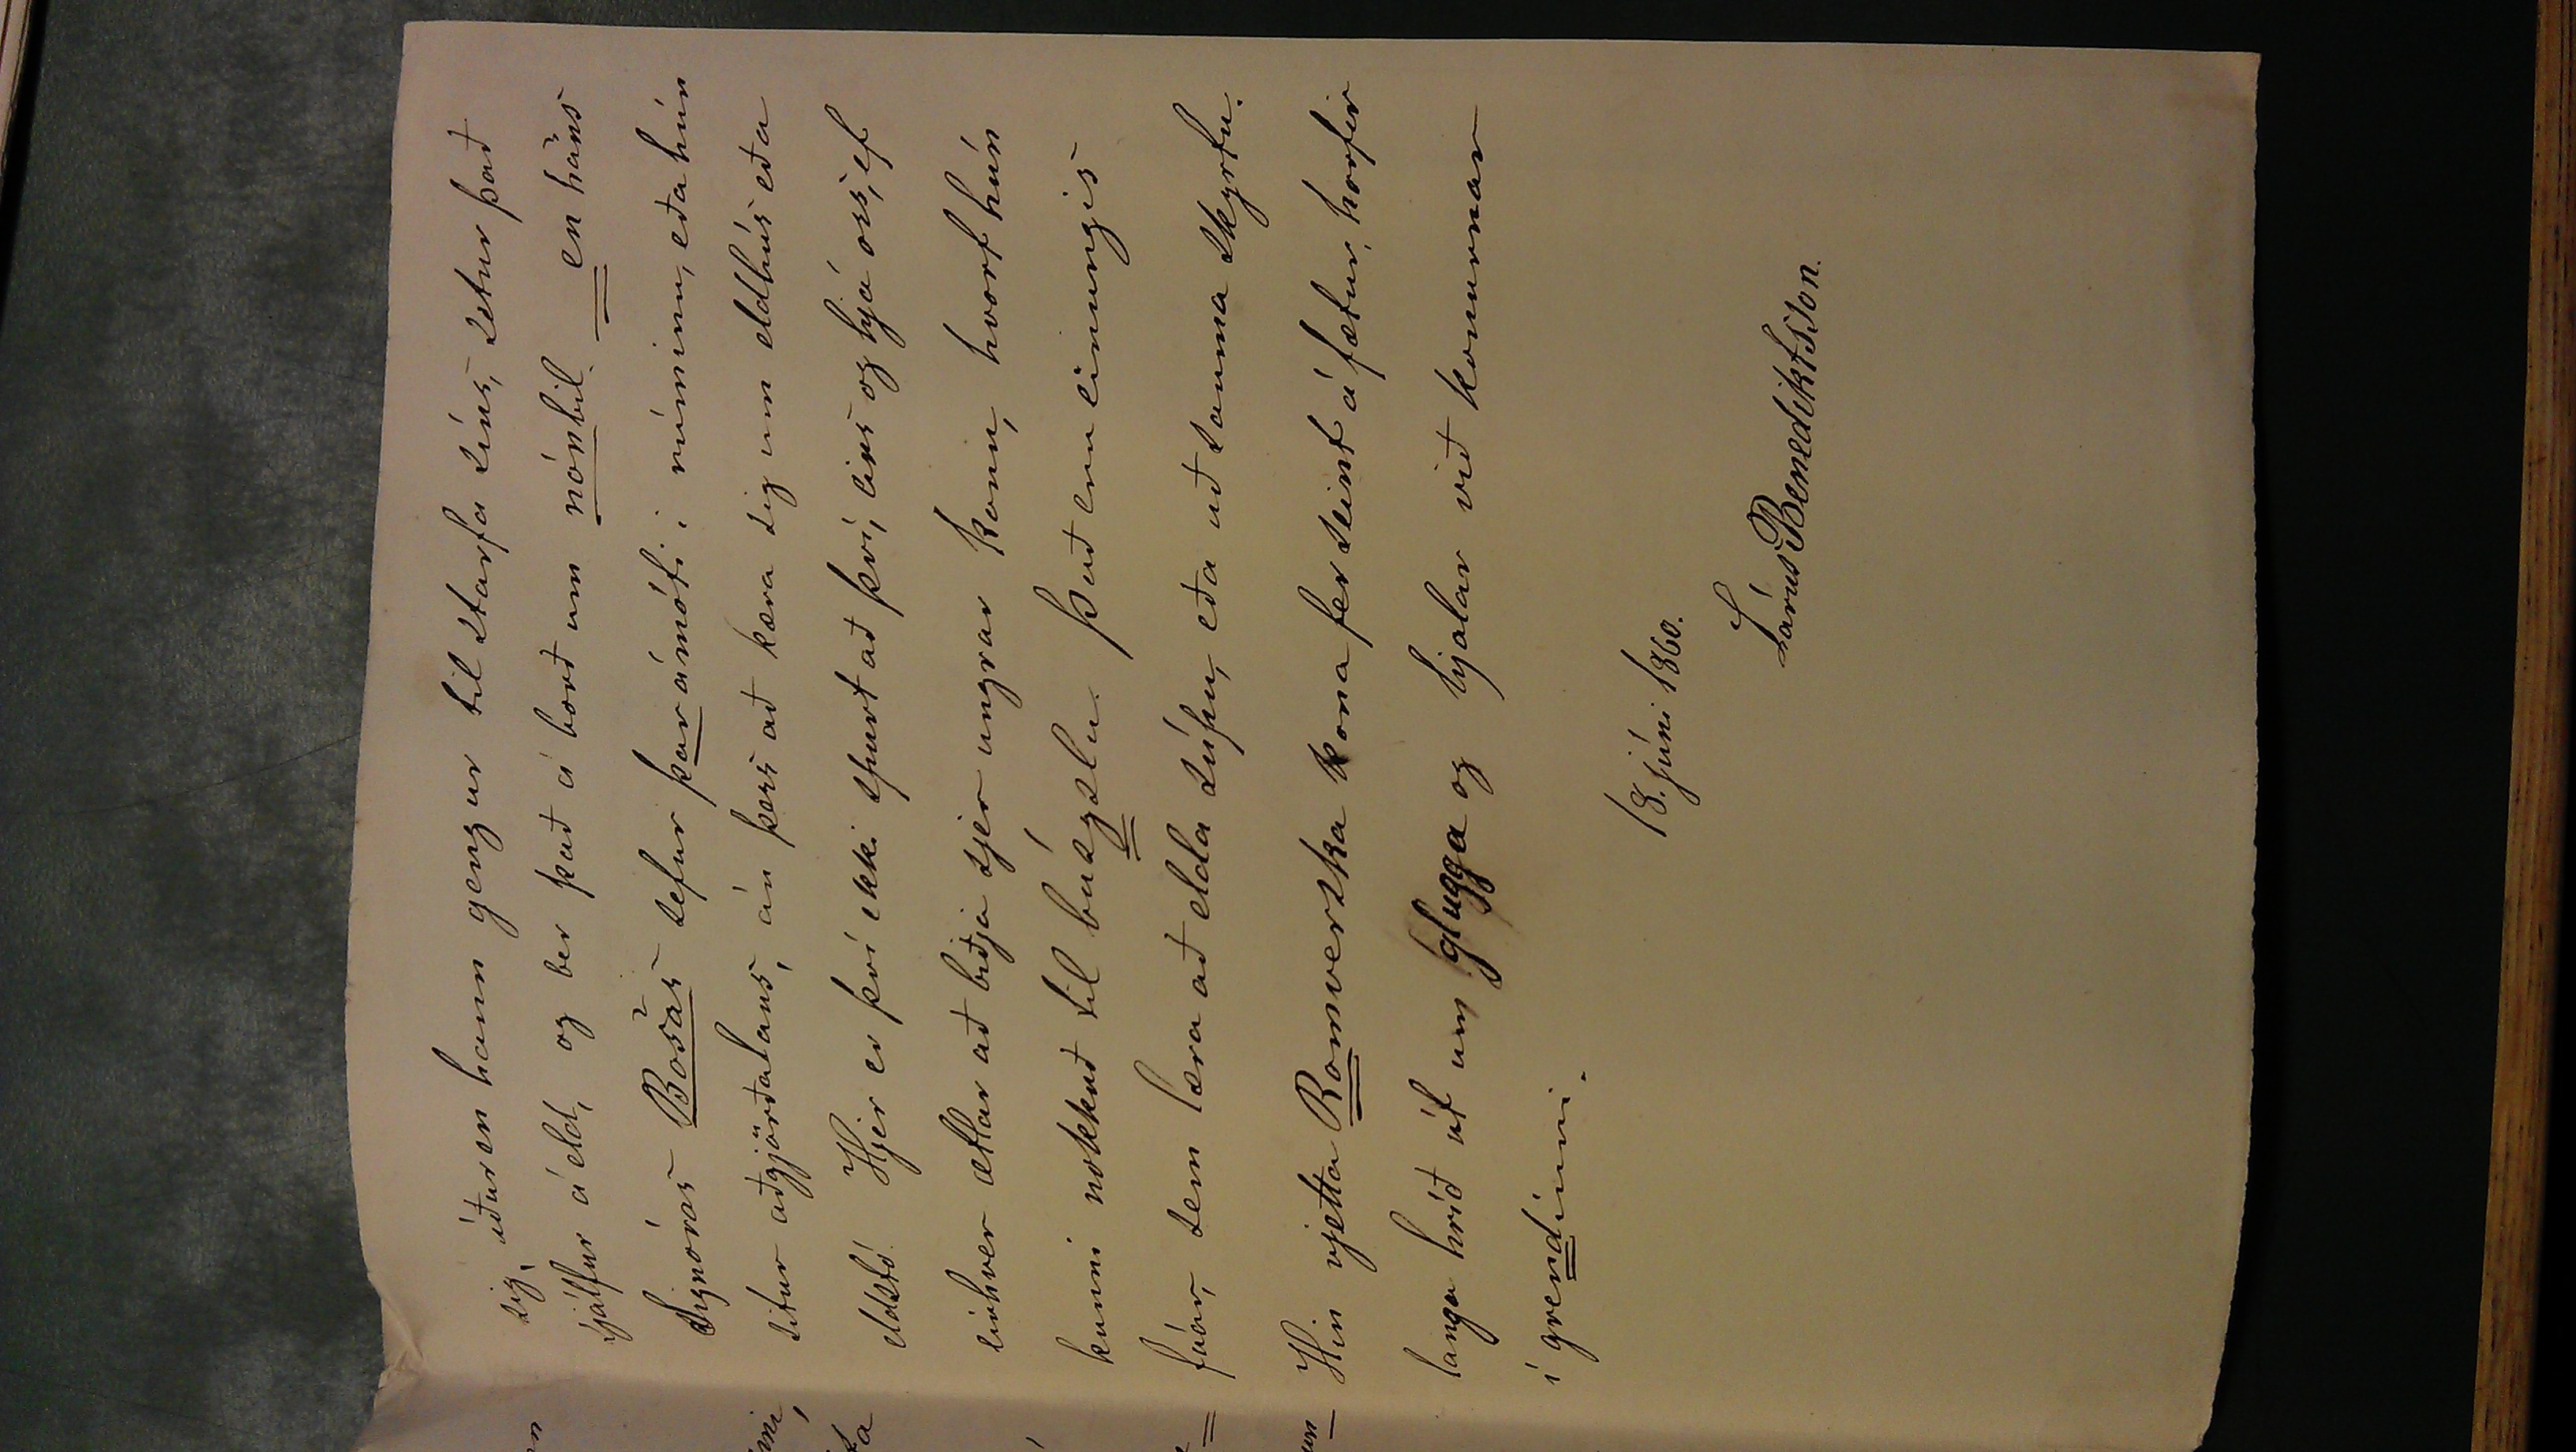 sig, áður en hann gengur til starfa síns, setur það
sjálfur á eld, og ber það á borð um nónbil. = en hans
Signóras Bosas sefur þar á móti í rúminu, eða hún
situr aðgjörðalaus, án þess að kæra sig um eldhús eða
eldstó. Hjer er því ekki spurt að því, eins og hjá oss, ef
einhver ætlar að biðja sjer ungrar konu, hvort hún
kunni nokkuð til búsýslu. Það eru einungis
fáar, sem læra að elda súpu, eða að sauma skyrtu.
Hin rjetta Romverska kona fer seint á fætur, horfir
langa hríð út um glugga og hjalar við konurnar
í grendinni.
18. júni 1860.
Lárus Benediktsson.